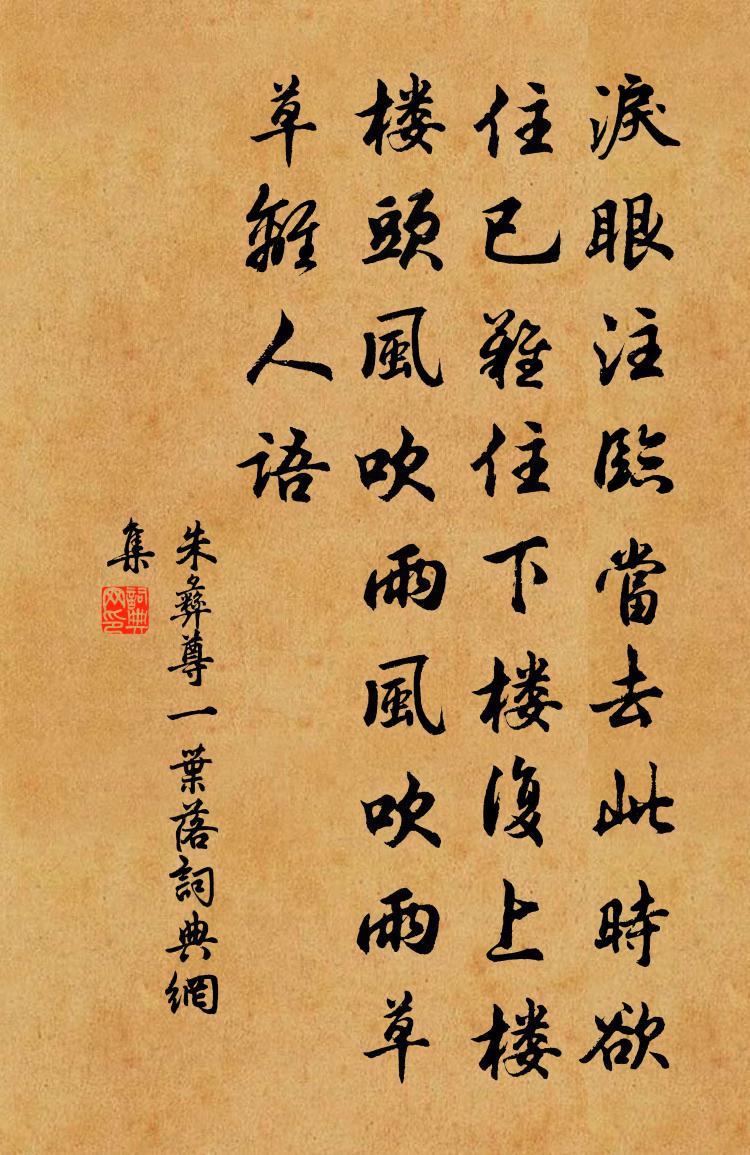 淚眼注臨當去此時欲
住已難住下楼復上楼
楼頭風吹雨風吹雨草
草離人語
朱彝尊一葉落詞典網
集
詞典
网印